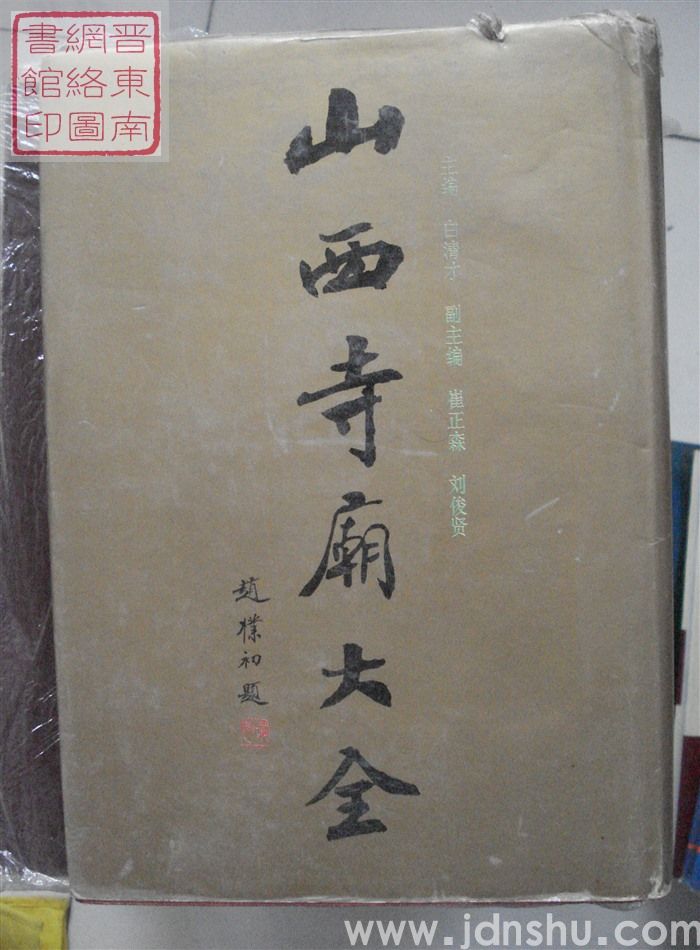 晋東南
網絡圖
書館印
主编 白清才 副主编 崔正森 刘俊贤
山西寺廟大全
趙樸初題
www.jdnshu.com